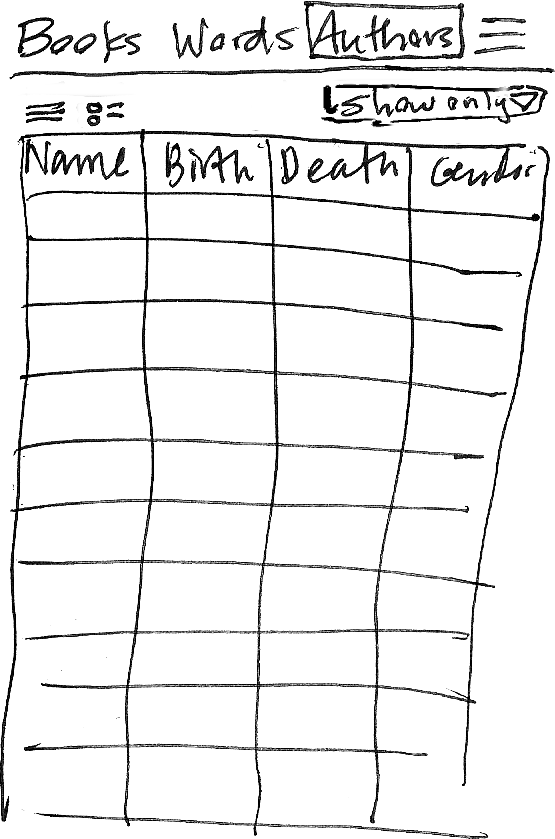 Books Words Authors
Show only
Name Birth Death Gender